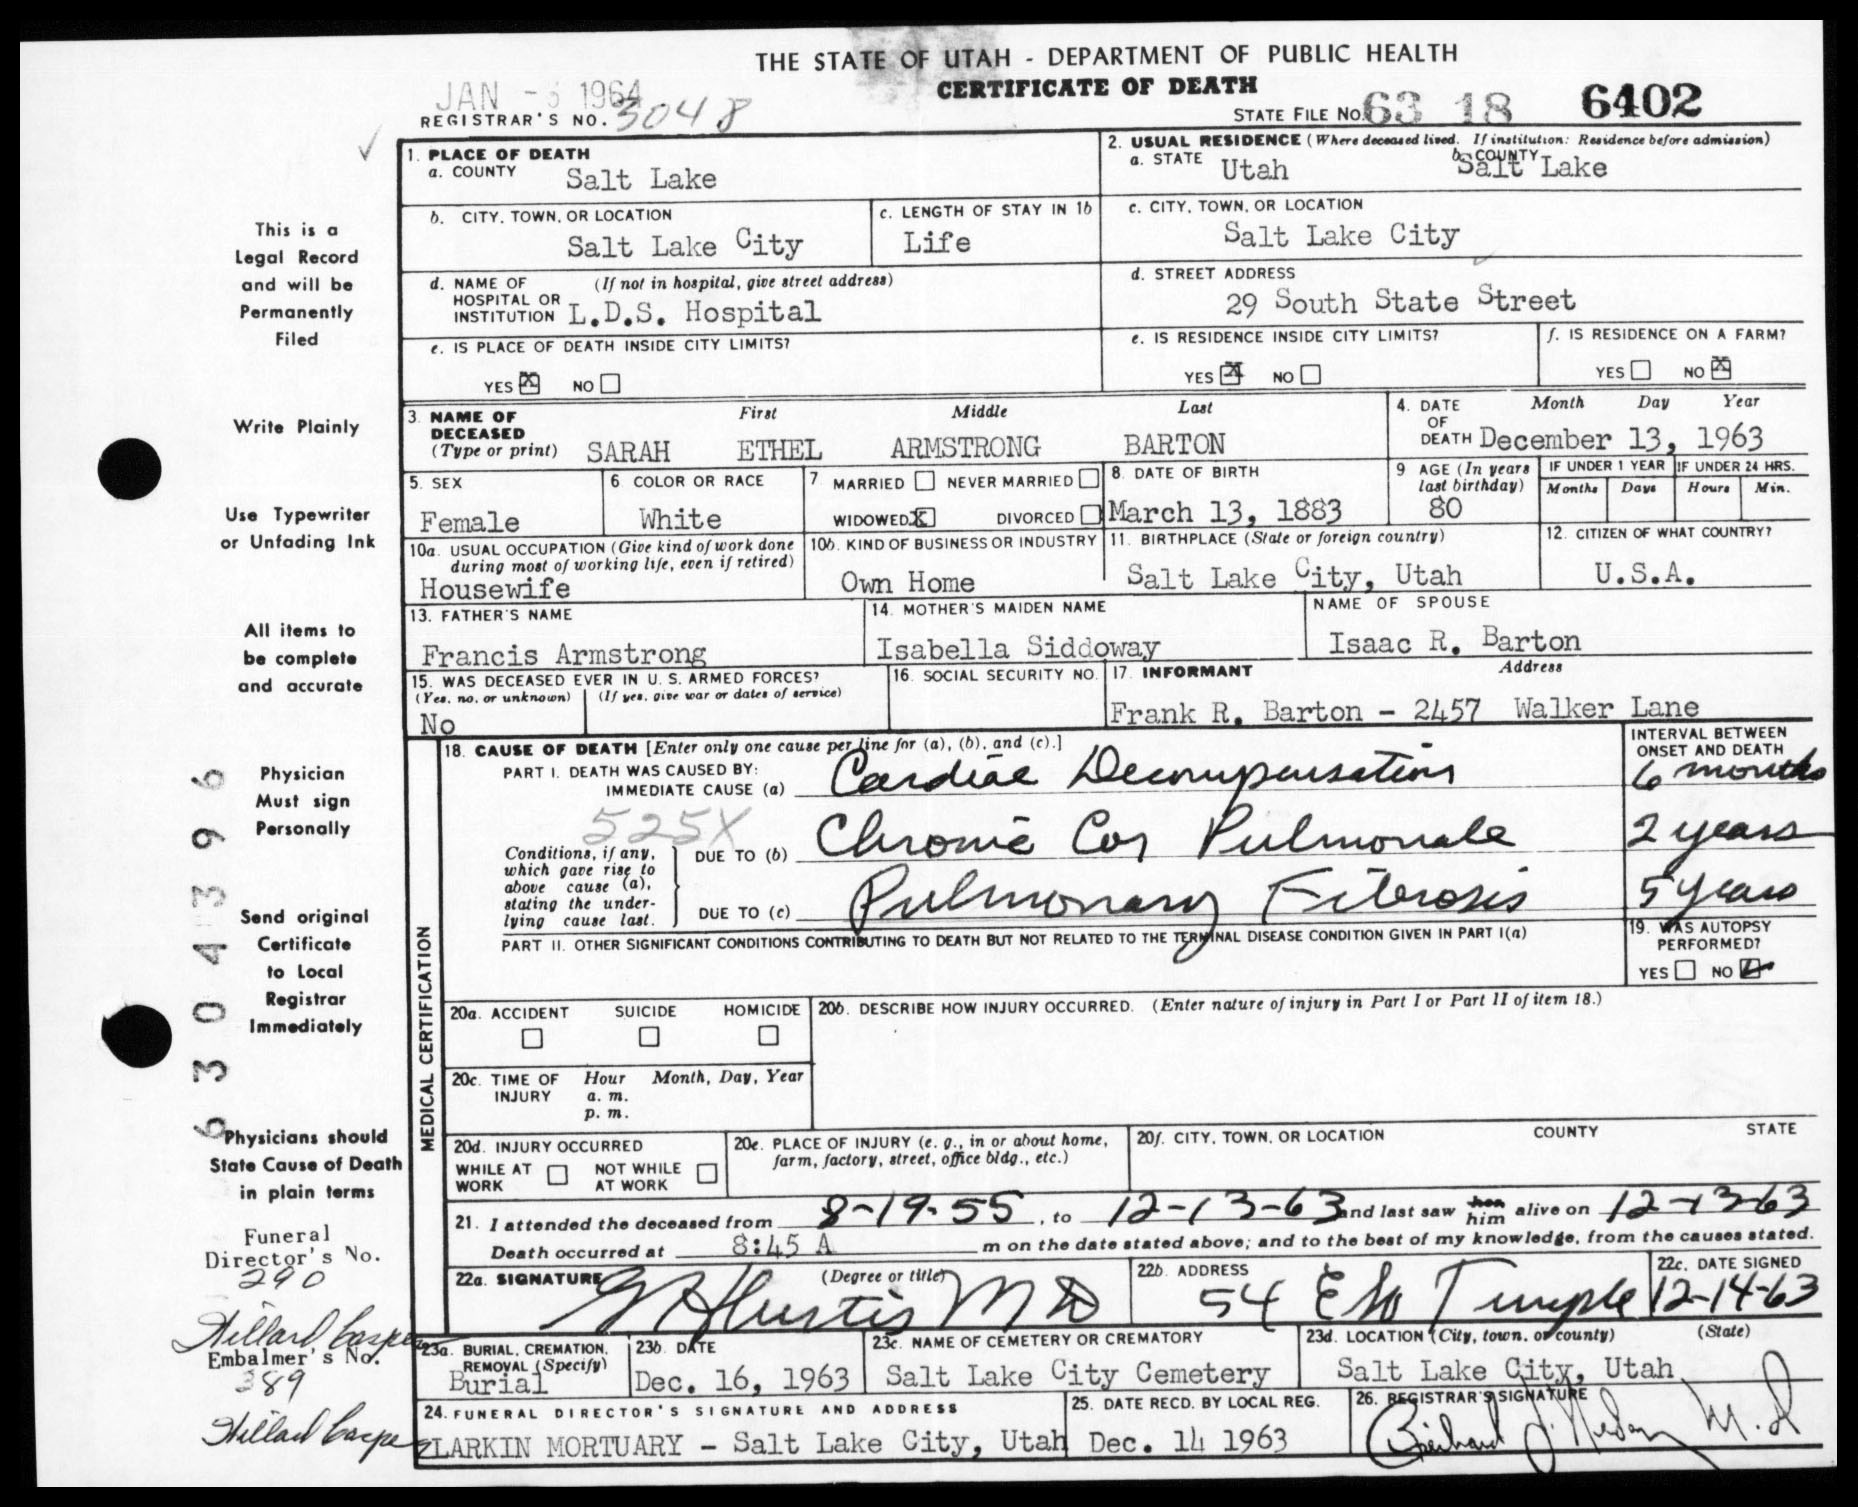 THE STATE OF UTAH - DEPARTMENT OF PUBLIC HEALTH
CERTIFICATE OF DEATH
JAN - 3 1964
REGISTRAR'S NO. 3048
STATE FILE NO. 63 18 6402
1. PLACE OF DEATH
a. COUNTY Salt Lake
2. USUAL RESIDENCE (Where deceased lived. If institution: Residence before admission)
a. STATE Utah b. COUNTY Salt Lake
b. CITY, TOWN, OR LOCATION Salt Lake City
c. LENGTH OF STAY IN 1b Life
c. CITY, TOWN, OR LOCATION Salt Lake City
d. NAME OF HOSPITAL OR INSTITUTION (If not in hospital, give street address) L.D.S. Hospital
d. STREET ADDRESS 29 South State Street
e. IS PLACE OF DEATH INSIDE CITY LIMITS?
YES X NO
e. IS RESIDENCE INSIDE CITY LIMITS?
YES X NO
f. IS RESIDENCE ON A FARM?
YES NO X
3. NAME OF DECEASED (Type or print) First Middle Last
SARAH ETHEL ARMSTRONG BARTON
4. DATE OF DEATH Month Day Year
December 13, 1963
5. SEX Female
6 COLOR OR RACE White
7 MARRIED NEVER MARRIED
WIDOWED X DIVORCED
8. DATE OF BIRTH March 13, 1883
9 AGE (In years last birthday) 80
IF UNDER 1 YEAR Months Days
IF UNDER 24 HRS. Hours Min.
10a. USUAL OCCUPATION (Give kind of work done during most of working life, even if retired) Housewife
10b. KIND OF BUSINESS OR INDUSTRY Own Home
11. BIRTHPLACE (State or foreign country) Salt Lake City, Utah
12. CITIZEN OF WHAT COUNTRY? U.S.A.
13. FATHER'S NAME Francis Armstrong
14. MOTHER'S MAIDEN NAME Isabella Siddoway
NAME OF SPOUSE Isaac R. Barton
15. WAS DECEASED EVER IN U. S. ARMED FORCES?
(Yes, no, or unknown) (If yes, give war or dates of service)
No
16. SOCIAL SECURITY NO.
17. INFORMANT Address
Frank R. Barton - 2457 Walker Lane
MEDICAL CERTIFICATION
18. CAUSE OF DEATH [Enter only one cause per line for (a), (b), and (c).]
INTERVAL BETWEEN ONSET AND DEATH
PART I. DEATH WAS CAUSED BY:
IMMEDIATE CAUSE (a) Cardiac Decompensation 6 months
525X
Conditions, if any, which gave rise to above cause (a), stating the underlying cause last.
DUE TO (b) Chronic Cor Pulmonale 2 years
DUE TO (c) Pulmonary Fibrosis 5 years
PART II. OTHER SIGNIFICANT CONDITIONS CONTRIBUTING TO DEATH BUT NOT RELATED TO THE TERMINAL DISEASE CONDITION GIVEN IN PART I(a)
19. WAS AUTOPSY PERFORMED?
YES NO
20a. ACCIDENT SUICIDE HOMICIDE
20b. DESCRIBE HOW INJURY OCCURRED. (Enter nature of injury in Part I or Part II of item 18.)
20c. TIME OF INJURY Hour Month, Day, Year
a. m.
p. m.
20d. INJURY OCCURRED
WHILE AT WORK NOT WHILE AT WORK
20e. PLACE OF INJURY (e. g., in or about home, farm, factory, street, office bldg., etc.)
20f. CITY, TOWN, OR LOCATION COUNTY STATE
21. I attended the deceased from 8-19-55, to 12-13-63 and last saw her him alive on 12-13-63
Death occurred at 8:45 A m on the date stated above; and to the best of my knowledge, from the causes stated.
22a. SIGNATURE (Degree or title) M D
22b. ADDRESS 54 E So Temple
22c. DATE SIGNED 12-14-63
23a. BURIAL, CREMATION, REMOVAL (Specify) Burial
23b. DATE Dec. 16, 1963
23c. NAME OF CEMETERY OR CREMATORY Salt Lake City Cemetery
23d. LOCATION (City, town, or county) (State) Salt Lake City, Utah
24. FUNERAL DIRECTOR'S SIGNATURE AND ADDRESS
LARKIN MORTUARY - Salt Lake City, Utah
25. DATE RECD. BY LOCAL REG. Dec. 14 1963
26. REGISTRAR'S SIGNATURE M.D
This is a
Legal Record
and will be
Permanently
Filed
Write Plainly
Use Typewriter
or Unfading Ink
All items to
be complete
and accurate
Physician
Must sign
Personally
Send original
Certificate
to Local
Registrar
Immediately
Physicians should
State Cause of Death
in plain terms
6304396
Funeral
Director's No.
290
Embalmer's No.
389